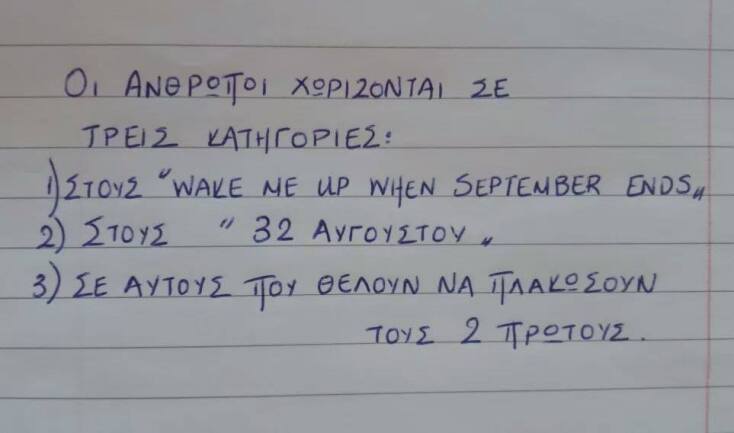 Οι ΑΝΘΡΩΠΟΙ ΧΩΡΙΖΟΝΤΑΙ ΣΕ
ΤΡΕΙΣ ΚΑΤΗΓΟΡΙΕΣ:
1) ΣΤΟΥΣ "WAKE ME UP WHEN SEPTEMBER ENDS„
2) ΣΤΟΥΣ " 32 ΑΥΓΟΥΣΤΟΥ „
3) ΣΕ ΑΥΤΟΥΣ ΠΟΥ ΘΕΛΟΥΝ ΝΑ ΠΛΑΚΩΣΟΥΝ
ΤΟΥΣ 2 ΠΡΩΤΟΥΣ.